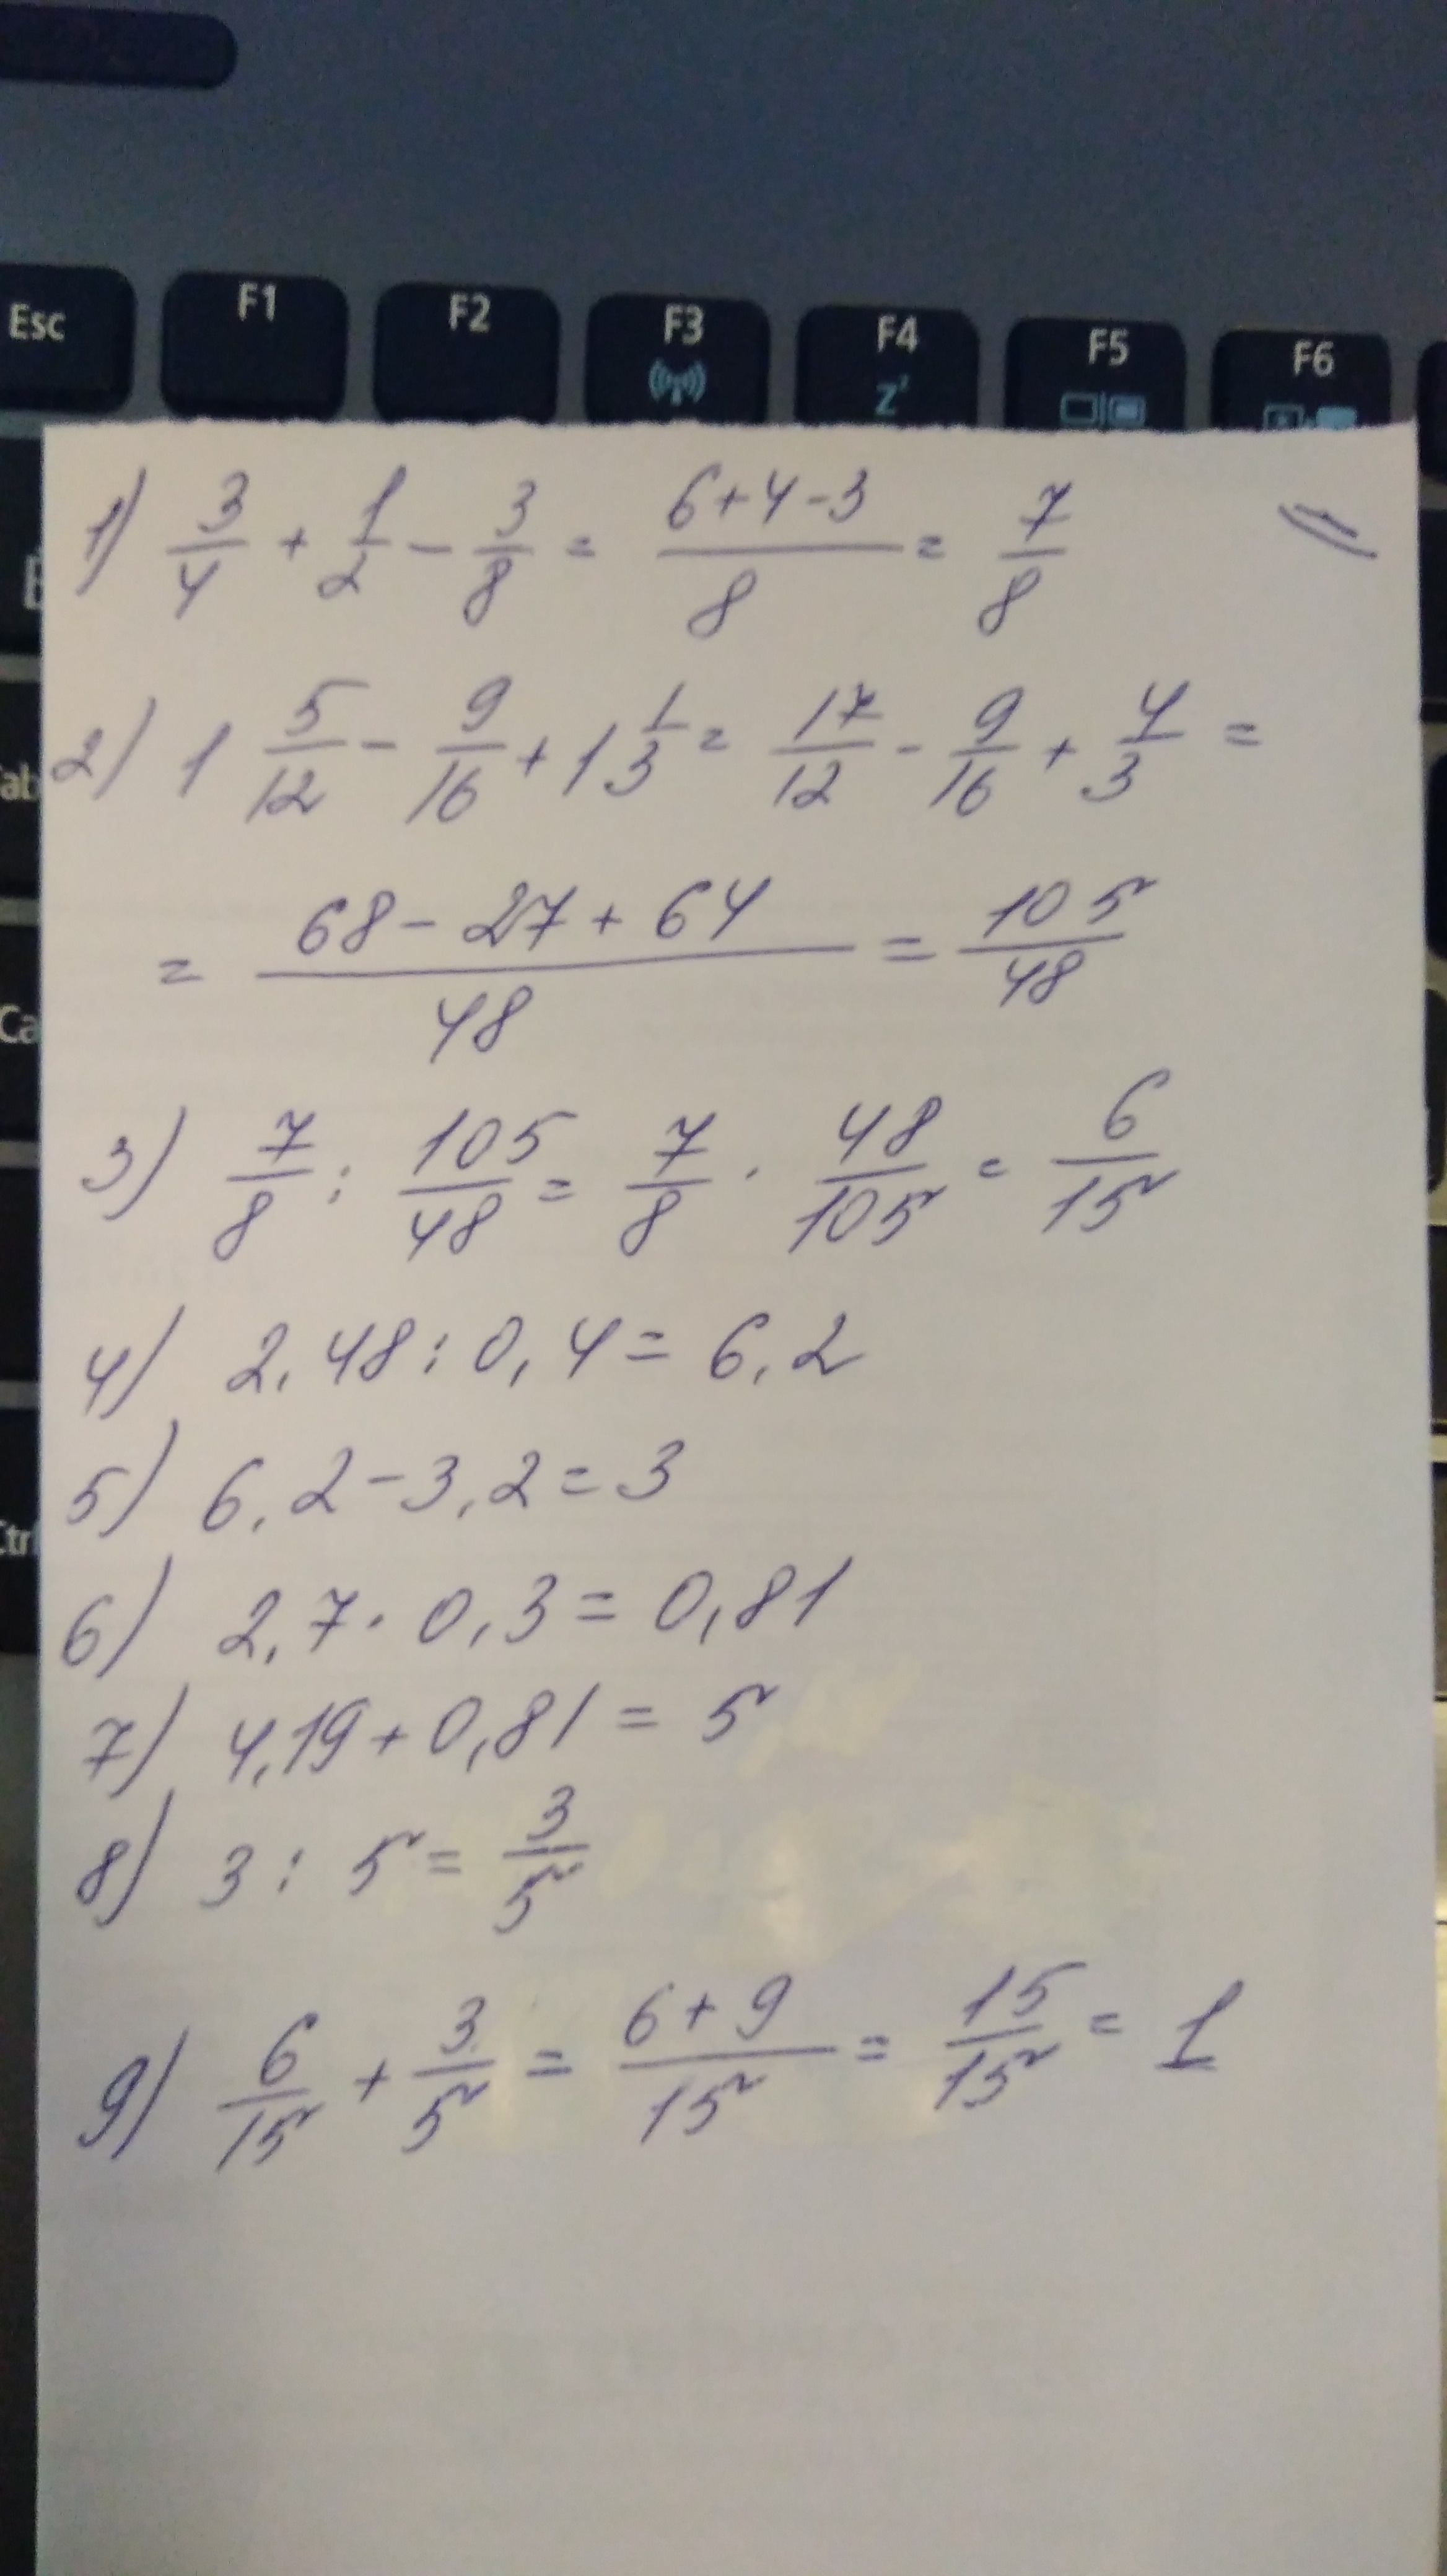 Esc F1 F2 F3 F4 Z F5 F6
1) 3/4 + 1/2 - 3/8 = (6+4-3)/8 = 7/8
2) 1 5/12 - 9/16 + 1 1/3 = 17/12 - 9/16 + 4/3 =
= (68-27+64)/48 = 105/48
3) 7/8 : 105/48 = 7/8 · 48/105 = 6/15
4) 2,48 : 0,4 = 6,2
5) 6,2 - 3,2 = 3
6) 2,7 · 0,3 = 0,81
7) 4,19 + 0,81 = 5
8) 3 : 5 = 3/5
9) 6/15 + 3/5 = (6+9)/15 = 15/15 = 1